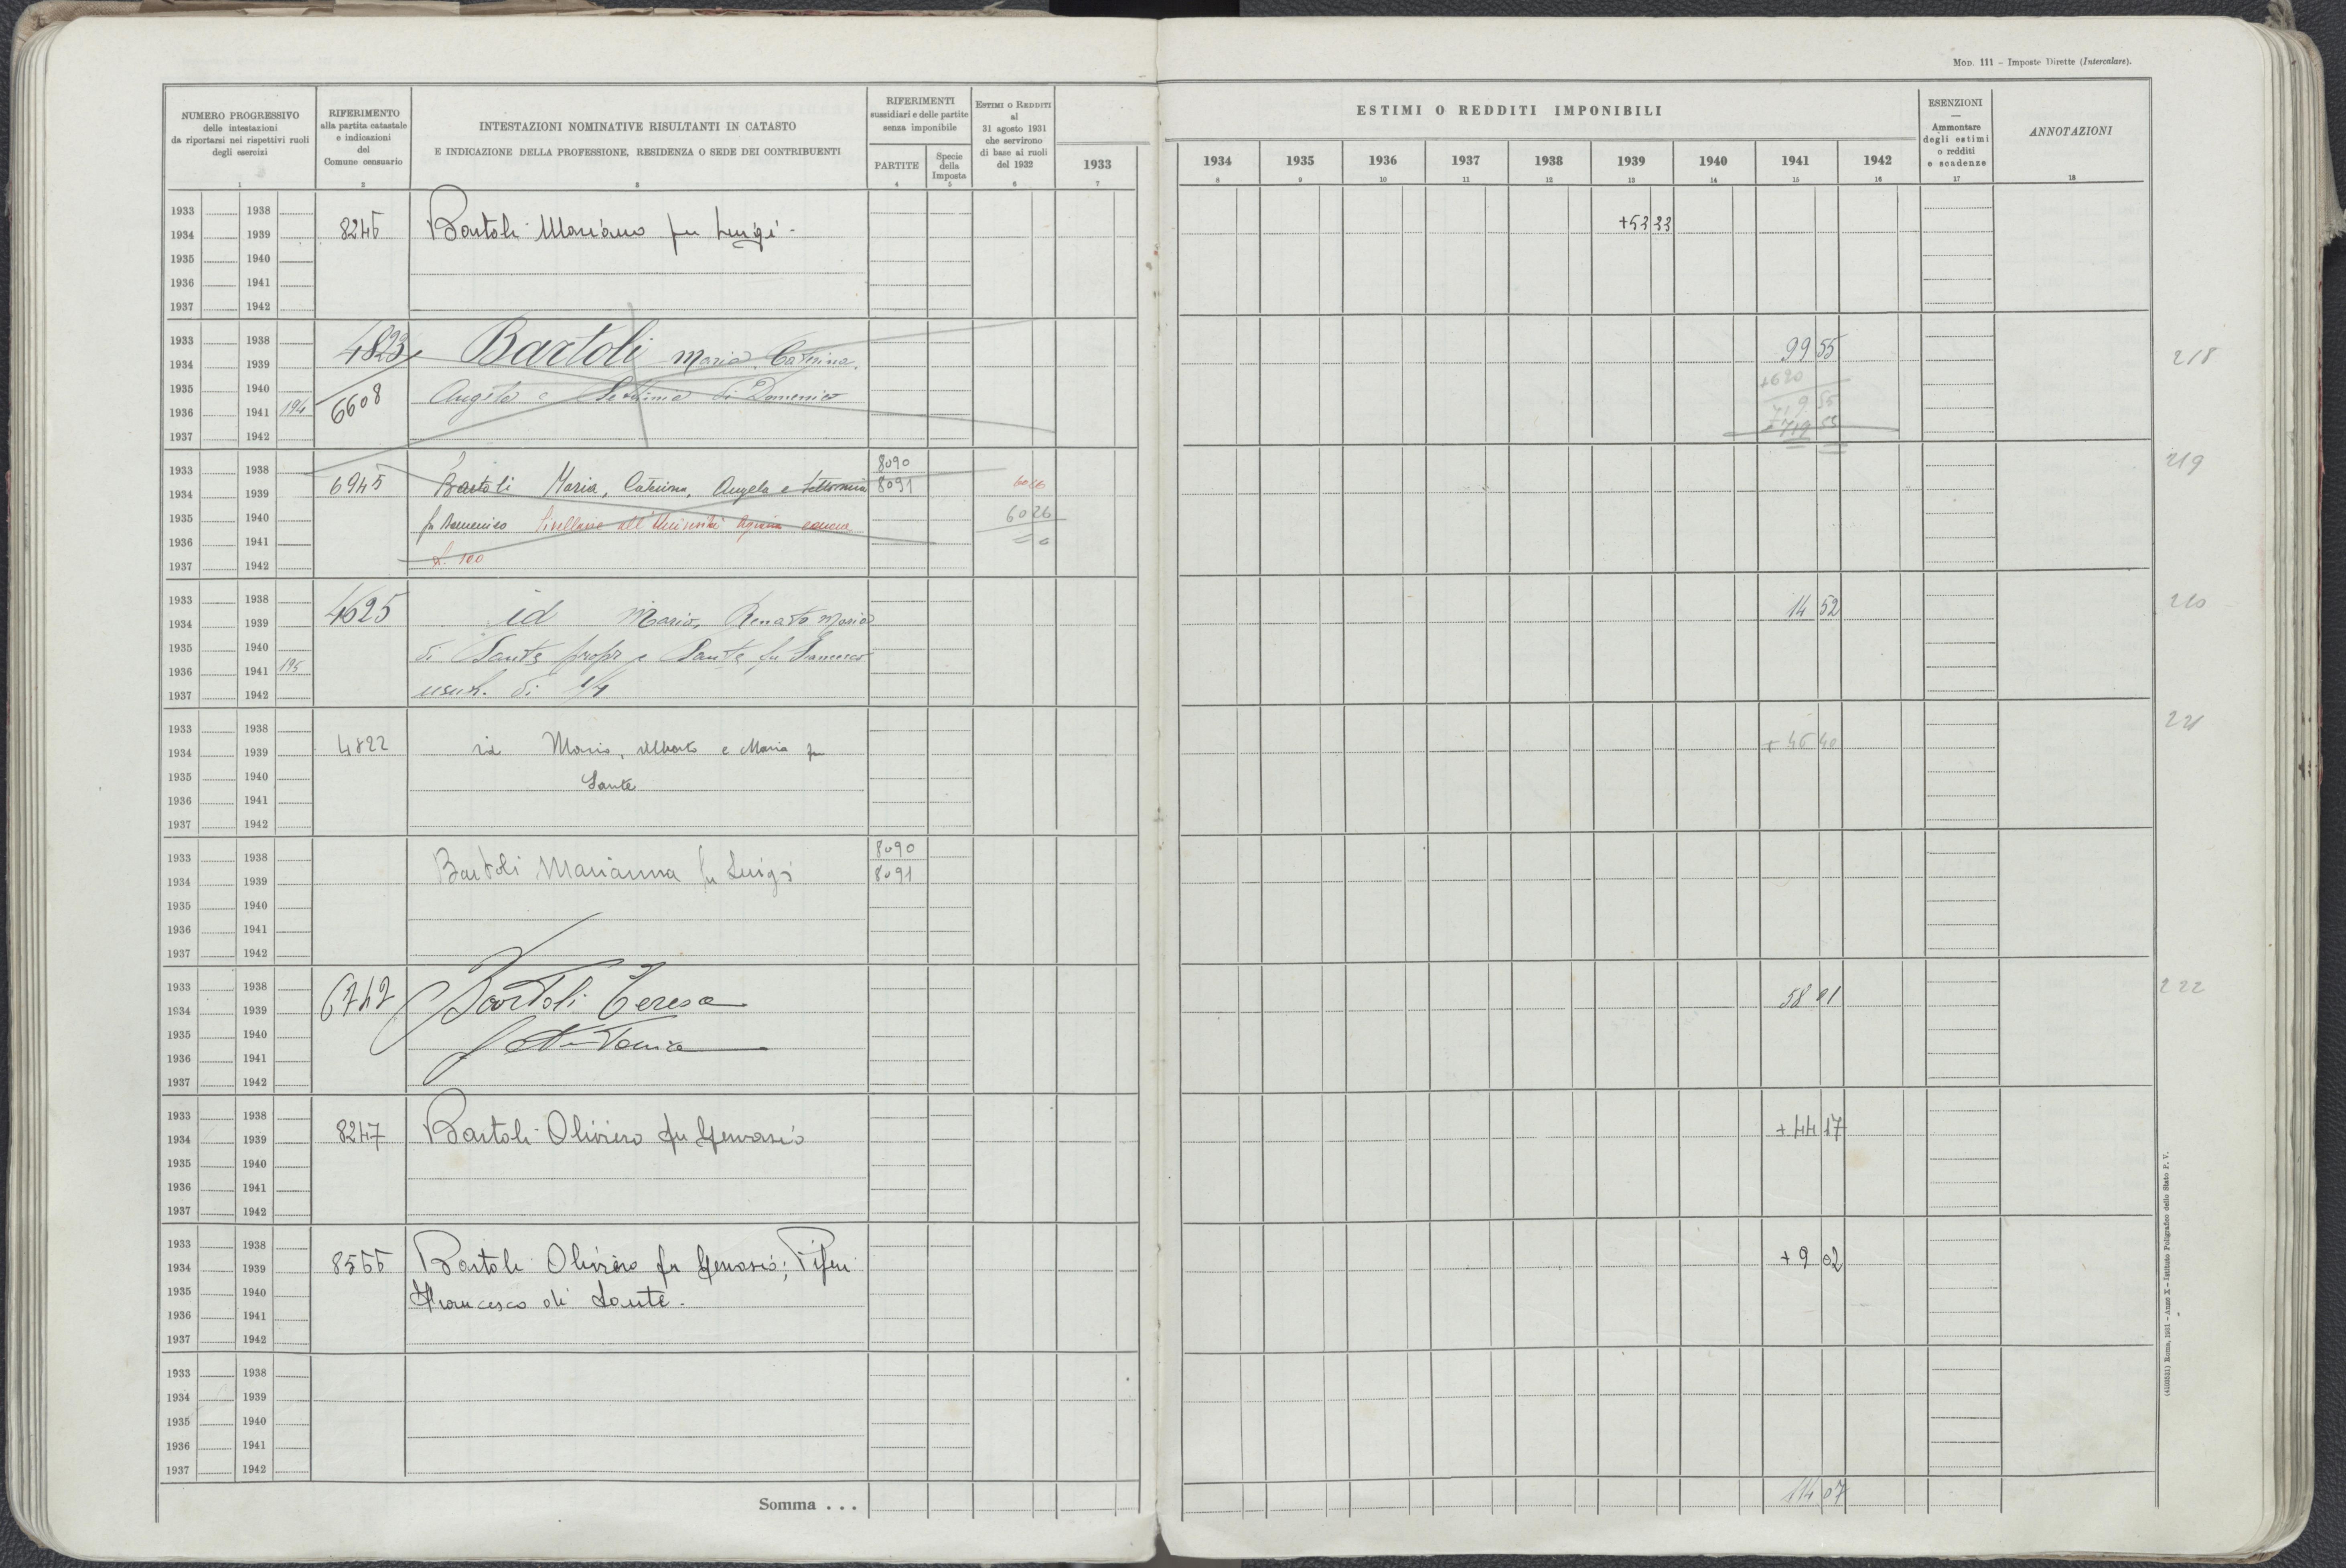 Mod. 111 – Imposte Dirette (Intercalare).
NUMERO PROGRESSIVO
delle intestazioni
da riportarsi nei rispettivi ruoli
degli esercizi
1
RIFERIMENTO
alla partita catastale
e indicazioni
del
Comune censuario
2
INTESTAZIONI NOMINATIVE RISULTANTI IN CATASTO
E INDICAZIONE DELLA PROFESSIONE, RESIDENZA O SEDE DEI CONTRIBUENTI
3
RIFERIMENTI
sussidiari e delle partite
senza imponibile
PARTITE
4
Specie
della
Imposta
5
ESTIMI O REDDITI
al
31 agosto 1931
che servirono
di base ai ruoli
del 1932
6
1933
7
ESTIMI O REDDITI IMPONIBILI
1934 1935 1936 1937 1938 1939 1940 1941 1942
8 9 10 11 12 13 14 15 16
ESENZIONI
—
Ammontare
degli estimi
o redditi
e scadenze
17
ANNOTAZIONI
18
1933 1938
1934 1939 8246 Bartoli Mariano fu Luigi - +53 33
1935 1940
1936 1941
1937 1942
1933 1938 4823 Bartoli Maria, Caterina, 99 55 218
1934 1939
1935 1940 6608 Angela e Settimia di Domenico +620
1936 1941 194 719 55
1937 1942 719 55
1933 1938 8090 219
1934 1939 6945 Bartoli Maria, Caterina, Angela e Settimia 8091 60 26
1935 1940 fu Domenico livellario all'Università Agraria canone 60 26
1936 1941
1937 1942 L. 100
1933 1938 4625 id Mario, Renato Maria 14 52 220
1934 1939
1935 1940 di Sante propr e Sante fu Francesco
1936 1941 195
1937 1942 usuf. di 1/4
1933 1938 221
1934 1939 4822 id Mario, Alberto e Maria fu + 46 40
1935 1940 Sante
1936 1941
1937 1942
1933 1938 8090
1934 1939 Bartoli Marianna fu Luigi 8091
1935 1940
1936 1941
1937 1942
1933 1938 6742 Bartoli Teresa 58 01 222
1934 1939
1935 1940
1936 1941
1937 1942
1933 1938
1934 1939 8247 Bartoli Oliviero fu Gervasio + 44 17
1935 1940
1936 1941
1937 1942
1933 1938
1934 1939 8566 Bartoli Oliviero fu Gervasio; Piferi + 9 02
1935 1940 Francesco di Sante.
1936 1941
1937 1942
1933 1938
1934 1939
1935 1940
1936 1941
1937 1942
Somma . . . 114 07
(4202531) Roma, 1931 – Anno X – Istituto Poligrafico dello Stato P. V.